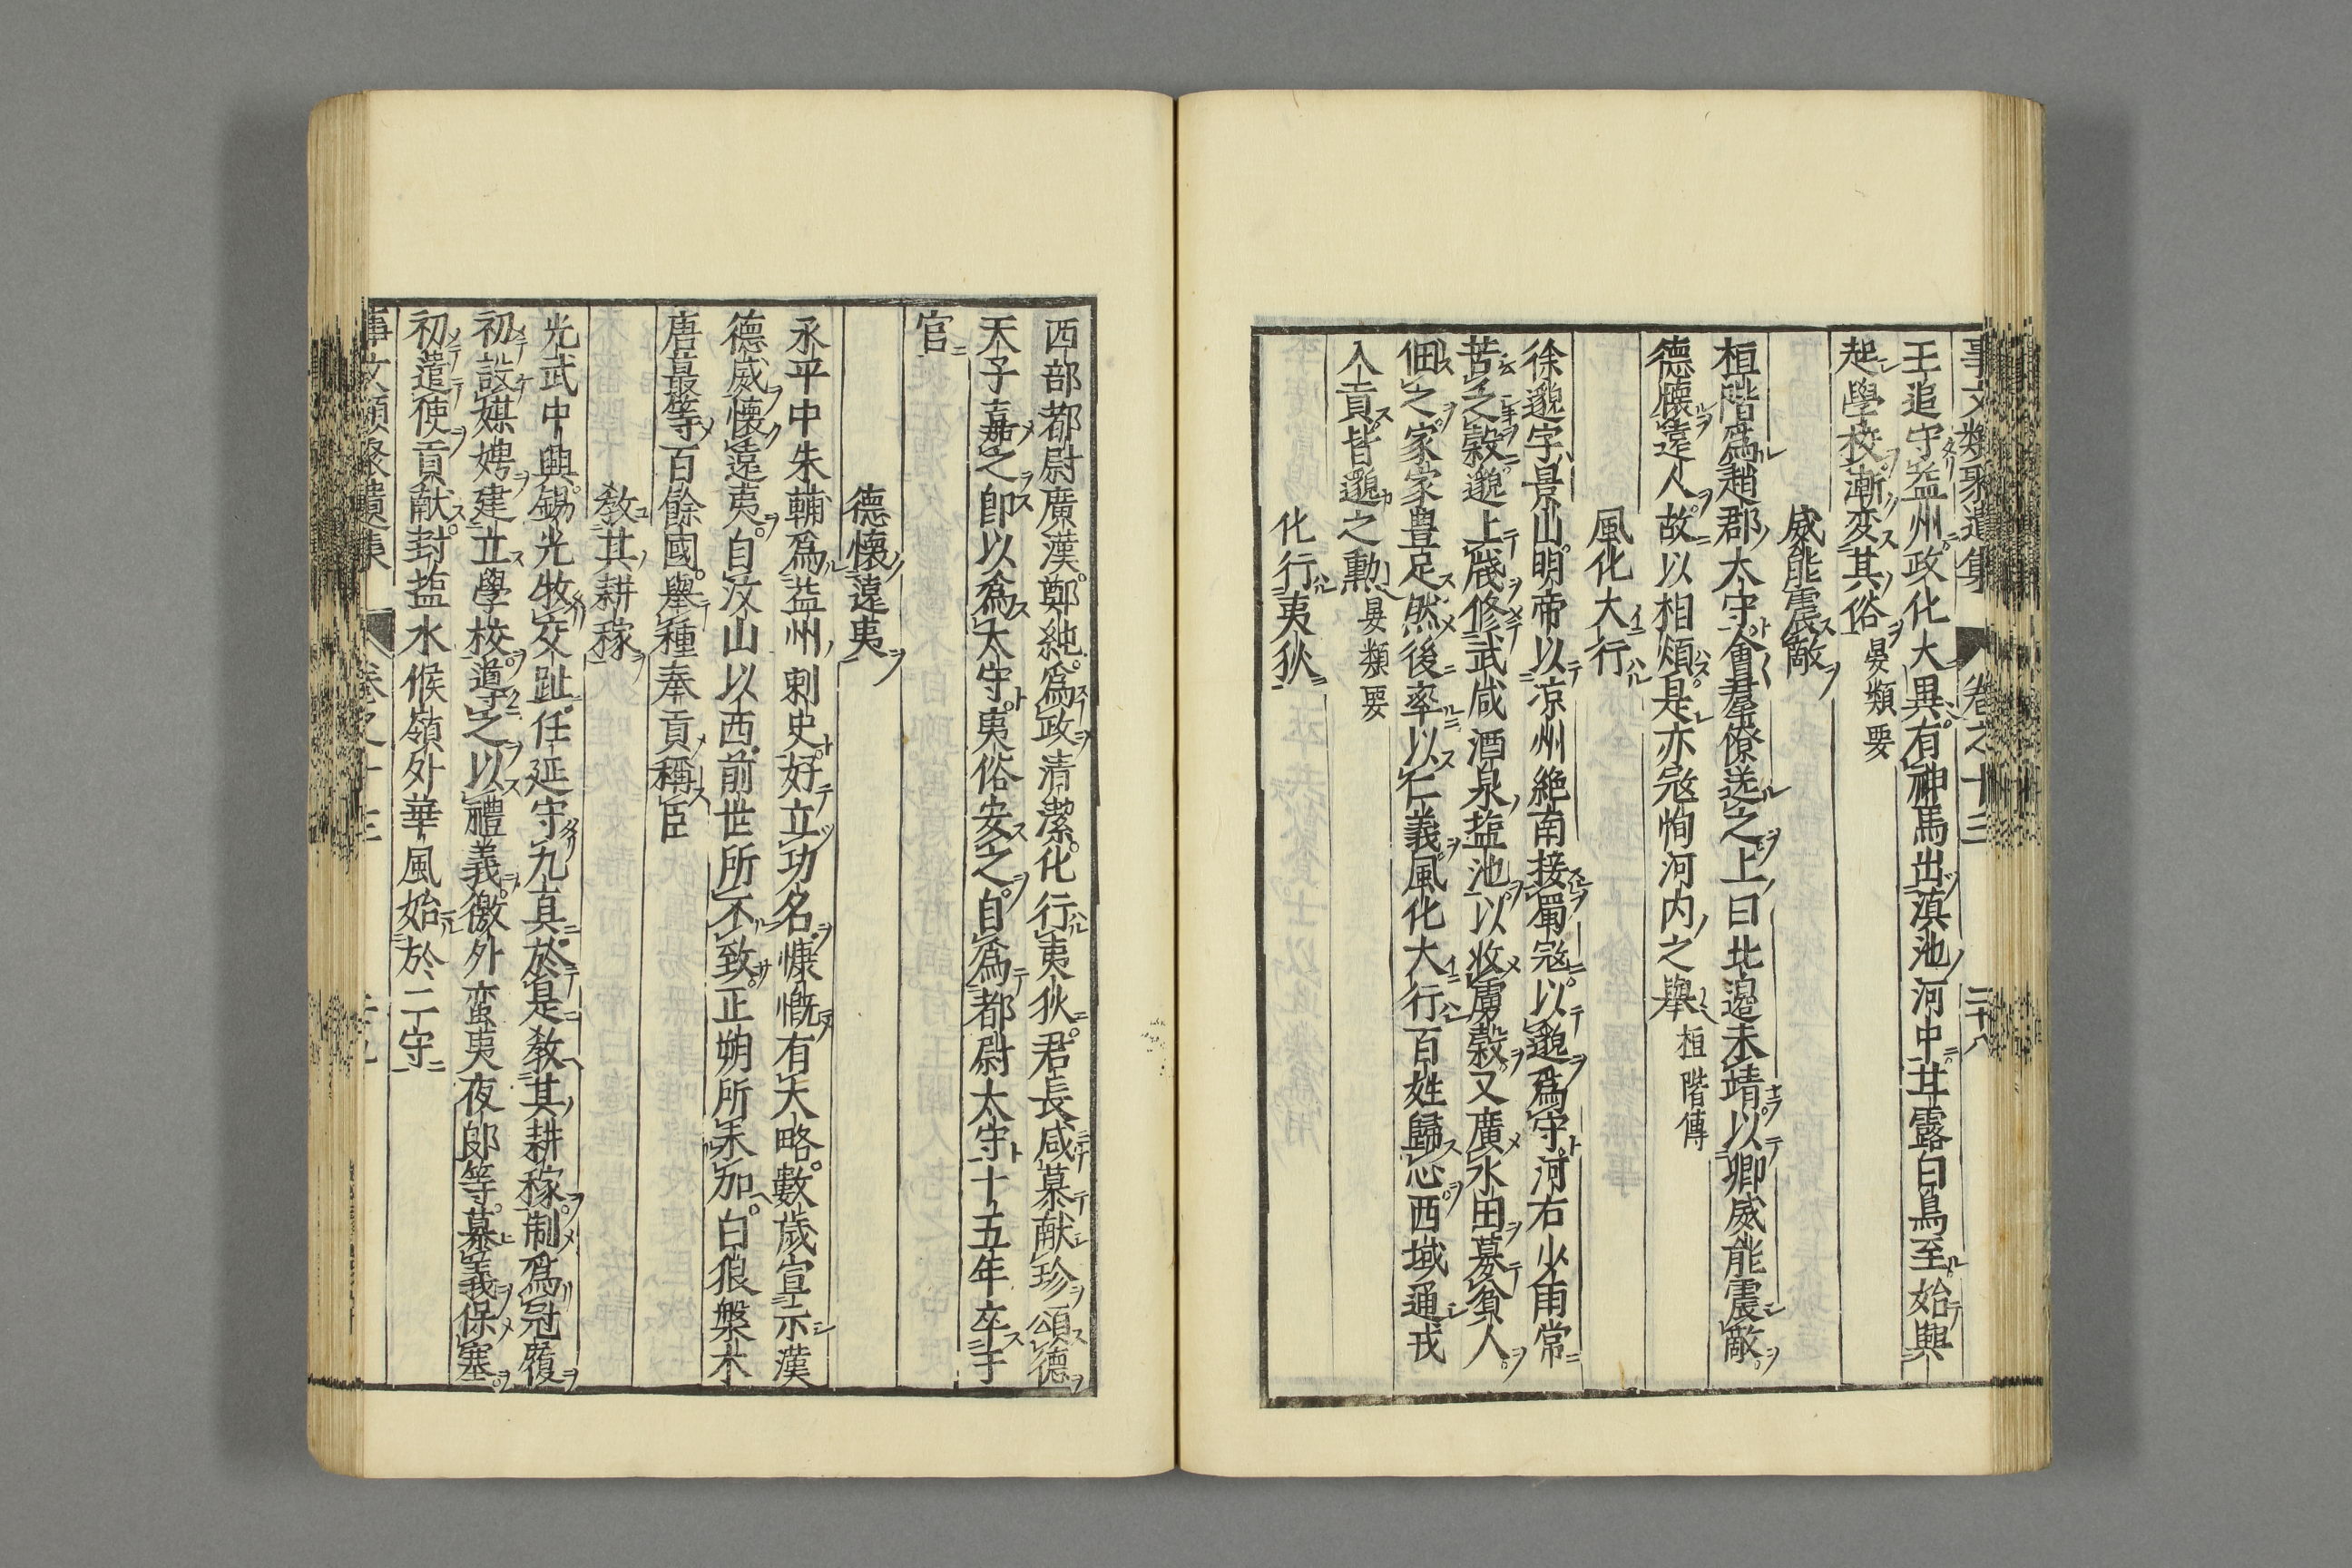 事文類聚遺集 卷之十三 二十八
王追守益州政化大異有神馬出滇池河中甘露白烏至始興
起學校漸変其俗 晏類要
威能震敵
桓階爲趙郡太守會羣僚送之上曰北邊未靖以卿威能震敵
德懷遠人故以相煩是亦冦恂河内之舉 桓階傳
風化大行
徐邈字景山明帝以凉州絶南接蜀冦以邈爲守河右少雨常
苦乏穀邈上殘修武威酒泉塩池以收虜穀又廣水田募貧人
佃之家家豊足然後率以仁義風化大行百姓歸心西域通戎
入貢皆邈之勲 晏類要
化行夷狄
西部都尉廣漢鄭純爲政清潔化行夷狄君長咸慕献珍頌德
天子嘉之即以爲太守夷俗安之自爲都尉太守十五年卒于
官
德懷遠夷
永平中朱輔爲益州刺史好立功名慷慨有大略數歲宣示漢
德威懷遠夷自汶山以西前世所不致正朔所未加白狼槃木
唐蕞等百餘國舉種奉貢稱臣
教其耕稼
光武中興錫光牧交趾任延守九真於是教其耕稼制爲冠履
初設媒娉建立學校導之以禮義徼外蛮夷夜郎等慕義保塞
初遣使貢献封塩水候嶺外華風始於二守
事文類聚遺集 卷之十三